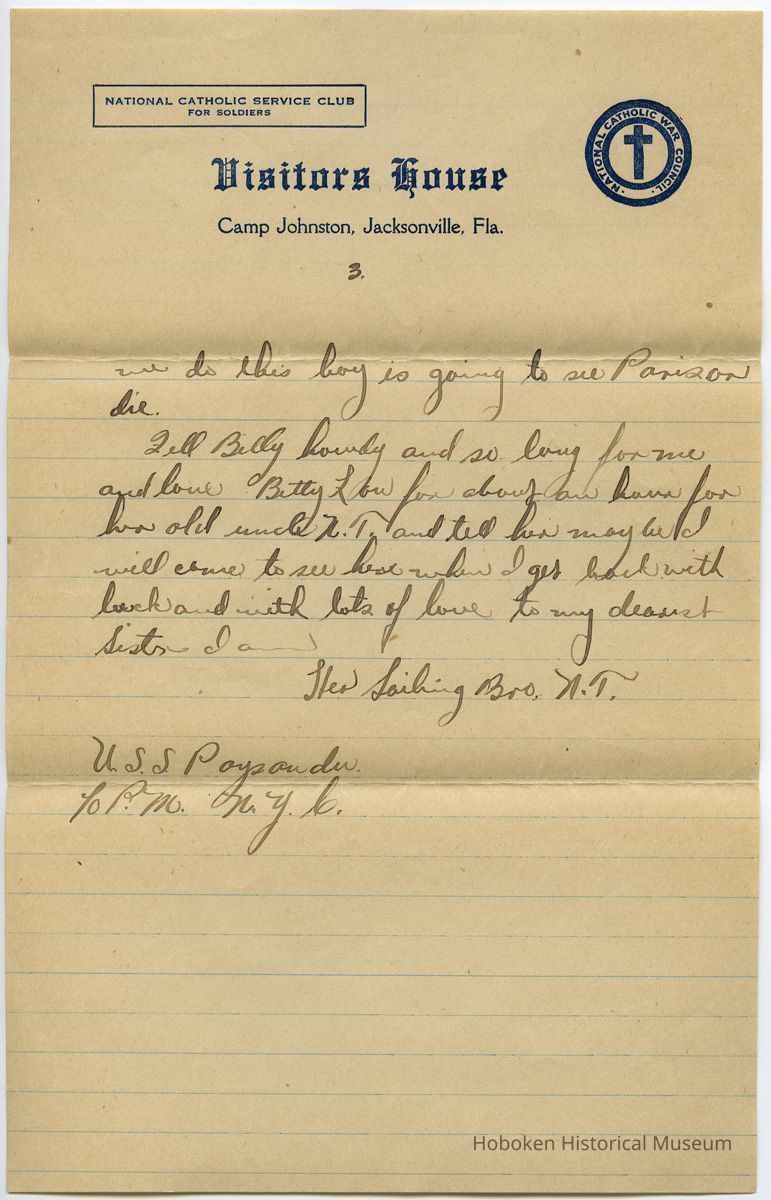 NATIONAL CATHOLIC SERVICE CLUB
FOR SOLDIERS
NATIONAL CATHOLIC WAR COUNCIL
Visitors House
Camp Johnston, Jacksonville, Fla.
3.
me do this boy is going to see Paris or
die.
Tell Billy howdy and so long for me
and love Betty Lou for about an hour for
her old uncle N.T. and tell her maybe I
will come to see her when I get back with
luck and with lots of love to my dearest
Sister I am
Her Sailing Bro. N.T.
U.S.S Paysandu.
℅ P.M. N.Y.C.
Hoboken Historical Museum